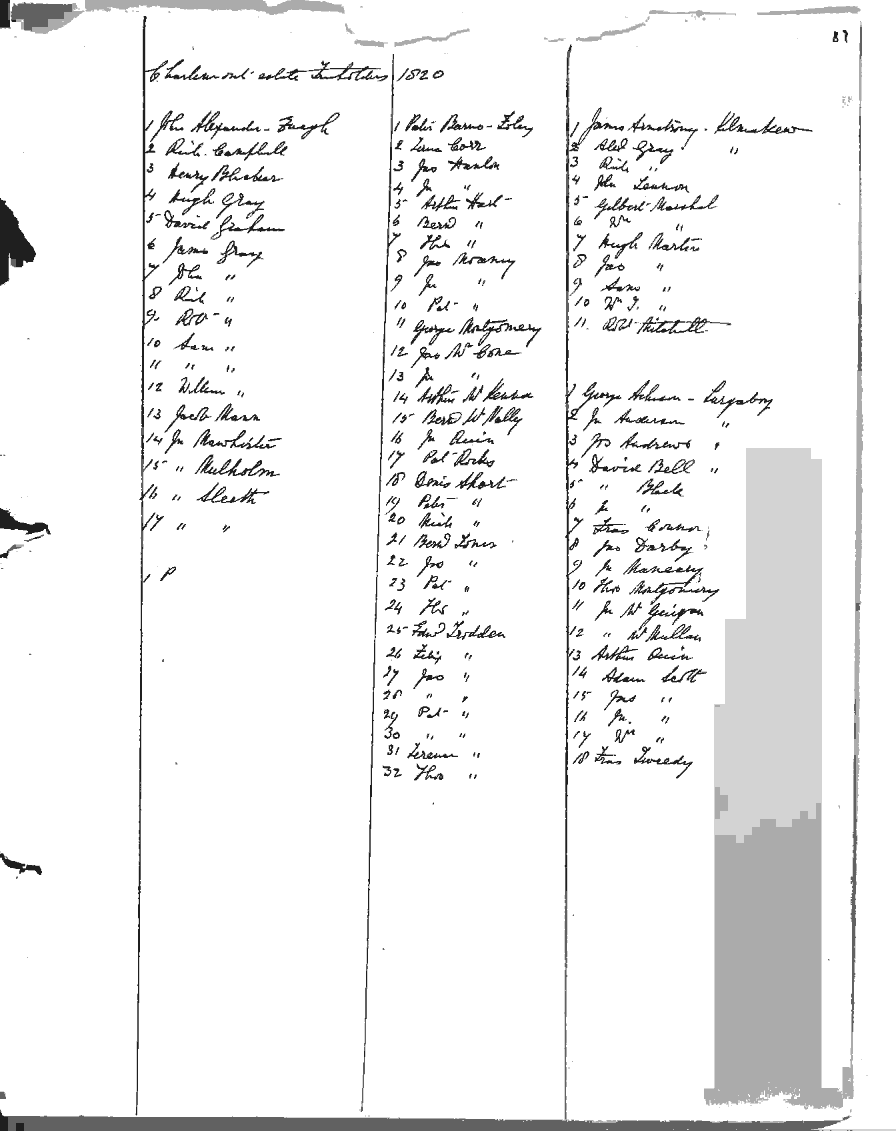 87
Charlemont estate Freeholders 1820
1 John Alexander -
2 Rich. Campbell
3 Henry
4 Hugh Gray
5 David Graham
6 James Gray
7 John "
8 Rich "
9. Robt "
10 Sam "
11 " "
12 William "
13 Jacob Mann
14 Jn Mawhister
15 " Mulholm
16 " Sleeth
17 " "
1 P
1 Peter - Foley
2 Corr
3 Jas Hanlon
4 Jn "
5 Arthur Hart
6 Bernd "
7 Thos "
8 Jas
9 Jn "
10 Pat "
11 George Montgomery
12 Jas Mc Cone
13 Jn "
14 Arthur Mc Kenna
15 Bernd Mc Nally
16 Jn Quin
17 Pat Rocks
18 Denis Short
19 Peter "
20 Mich "
21 Bernd
22 Jas "
23 Pat "
24 Thos "
25 Edwd Trodden
26 Felix "
27 Jas "
28 " "
29 Pat "
30 " "
31 Terence "
32 Thos "
1 James Armstrong - Kilmakew
2 Alexd Gray "
3 Rich "
4 John Lennon
5 Gilbert Marshal
6 Wm "
7 Hugh Martin
8 Jas "
9 Sam "
10 W. J. "
11. Robt Mitchell
1 George - Lurgaboy
2 Jn Anderson "
3 Jas Andrews "
4 David Bell "
5 " Black
6 Jn "
7 Fras Connor
8 Jas Darby
9 Jn
10 Thos Montgomery
11 Jn Mc
12 " McMullan
13 Arthur Quin
14 Adam Scott
15 Jas "
16 Jn. "
17 Wm "
18 Fras Tweedy